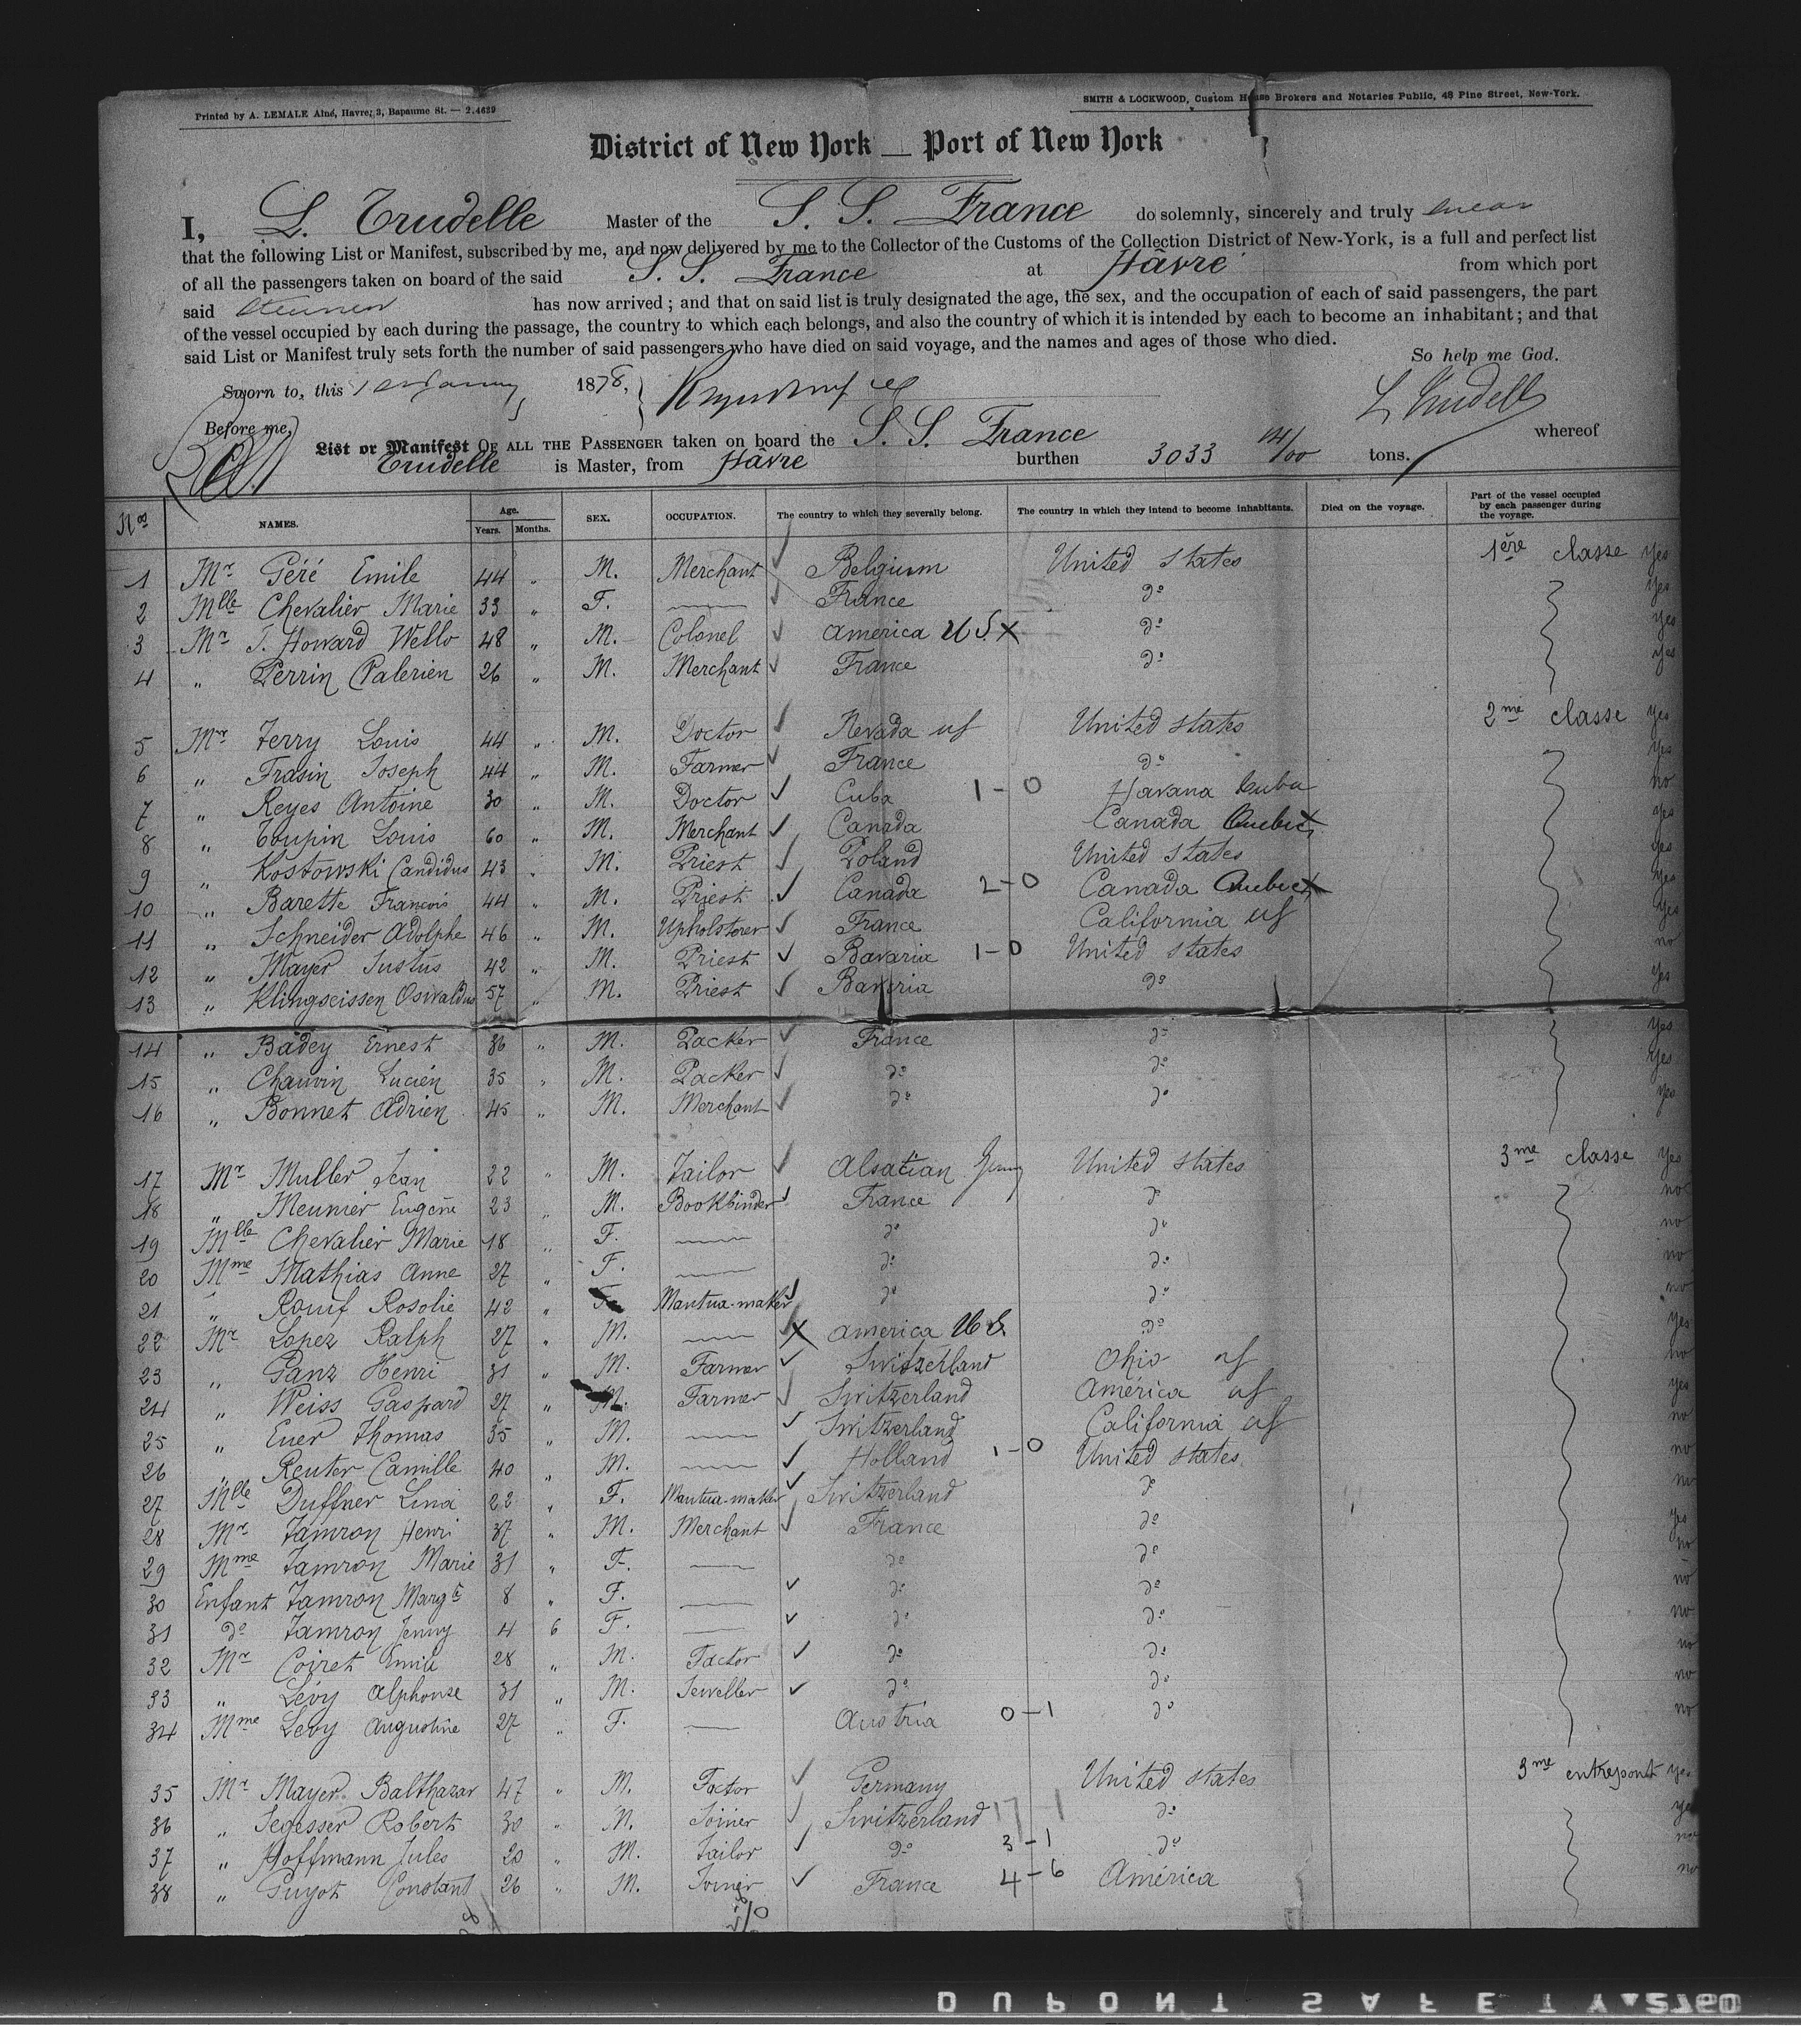 Printed by A. LEMALE Aîné, Havre; 3, Bapaume St. — 2.4639
SMITH & LOCKWOOD, Custom House Brokers and Notaries Public, 48 Pine Street, New-York.
District of New York — Port of New York
I, L. Trudelle Master of the S. S. France do solemnly, sincerely and truly swear
that the following List or Manifest, subscribed by me, and now delivered by me to the Collector of the Customs of the Collection District of New-York, is a full and perfect list
of all the passengers taken on board of the said S. S. France at Hâvre from which port
said Steamer has now arrived; and that on said list is truly designated the age, the sex, and the occupation of each of said passengers, the part
of the vessel occupied by each during the passage, the country to which each belongs, and also the country of which it is intended by each to become an inhabitant; and that
said List or Manifest truly sets forth the number of said passengers who have died on said voyage, and the names and ages of those who died.
So help me God.
Sworn to, this 1878,
L Trudelle
Before me,
List or Manifest OF ALL THE PASSENGER taken on board the S. S. France whereof
Trudelle is Master, from Hâvre burthen 3033 14/100 tons.
Nos NAMES. Age. Years. Months. SEX. OCCUPATION. The country to which they severally belong. The country in which they intend to become inhabitants. Died on the voyage. Part of the vessel occupied by each passenger during the voyage.
1 Mr Géré Emile 44 " M. Merchant Belgium United States 1ère classe yes
2 Mlle Chevalier Marie 33 " F. — France do yes
3 Mr T. Howard Wello 48 " M. Colonel America US X do yes
4 " Perrin Valerien 26 " M. Merchant France do yes
5 Mr Ferry Louis 44 " M. Doctor Nevada US United States 2me classe yes
6 " Frasin Joseph 44 " M. Farmer France do yes
7 " Reyes Antoine 30 " M. Doctor Cuba 1-0 Havana Cuba no
8 " Toupin Louis 60 " M. Merchant Canada Canada Quebec yes
9 " Kostowski Candidus 43 " M. Priest Poland United States yes
10 " Barette Francois 44 " M. Priest Canada 2-0 Canada Quebec yes
11 " Schneider Adolphe 46 " M. Upholsterer France California US yes
12 " Mayer Justus 42 " M. Priest Bavaria 1-0 United States no
13 " Klingseissen Oswaldus 57 " M. Priest Bavaria do yes
14 " Badey Ernest 36 " M. Packer France do yes
15 " Chauvin Lucien 35 " M. Packer do do yes
16 " Bonnet Adrien 45 " M. Merchant do do yes
17 Mr Muller Jean 22 " M. Tailor Alsatian Germy United States 3me classe yes
18 " Meunier Eugène 23 " M. Bookbinder France do no
19 Mlle Chevalier Marie 18 " F. — do do no
20 Mme Mathias Anne 27 " F. — do do no
21 " Rosolie 42 " F. Mantua-maker do do no
22 Mr Lopez Ralph 27 " M. — X America US. do yes
23 " Ganz Henri 31 " M. Farmer Switzerland Ohio US no
24 " Weiss Gaspard 27 " M. Farmer Switzerland América US yes
25 " Euer Thomas 35 " M. — Switzerland California US no
26 " Reuter Camille 40 " M. — Holland 1-0 United States no
27 Mlle Duffner Lina 22 " F. Mantua-maker Switzerland do no
28 Mr Tamron Henri 37 " M. Merchant France do yes
29 Mme Tamron Marie 31 " F. — do do no
30 Enfant Tamron Margte 8 " F. — do do no
31 do Tamron Jenny 4 6 F. — do do no
32 Mr Coiret Emile 28 " M. Factor do do no
33 " Lévy Alphonse 31 " M. Jeweller do do no
34 Mme Levy Augustine 27 " F. — Austria 0-1 do no
35 Mr Mayer Balthazar 47 " M. Factor Germany United States 3me entrepont yes
36 " Segesser Robert 30 " M. Joiner Switzerland 17-1 do yes
37 " Hoffmann Jules 20 " M. Tailor do 3-1 do no
38 " Guyot Constant 26 " M. Joiner France 4-6 América no
DUPONT SAFETY 2760